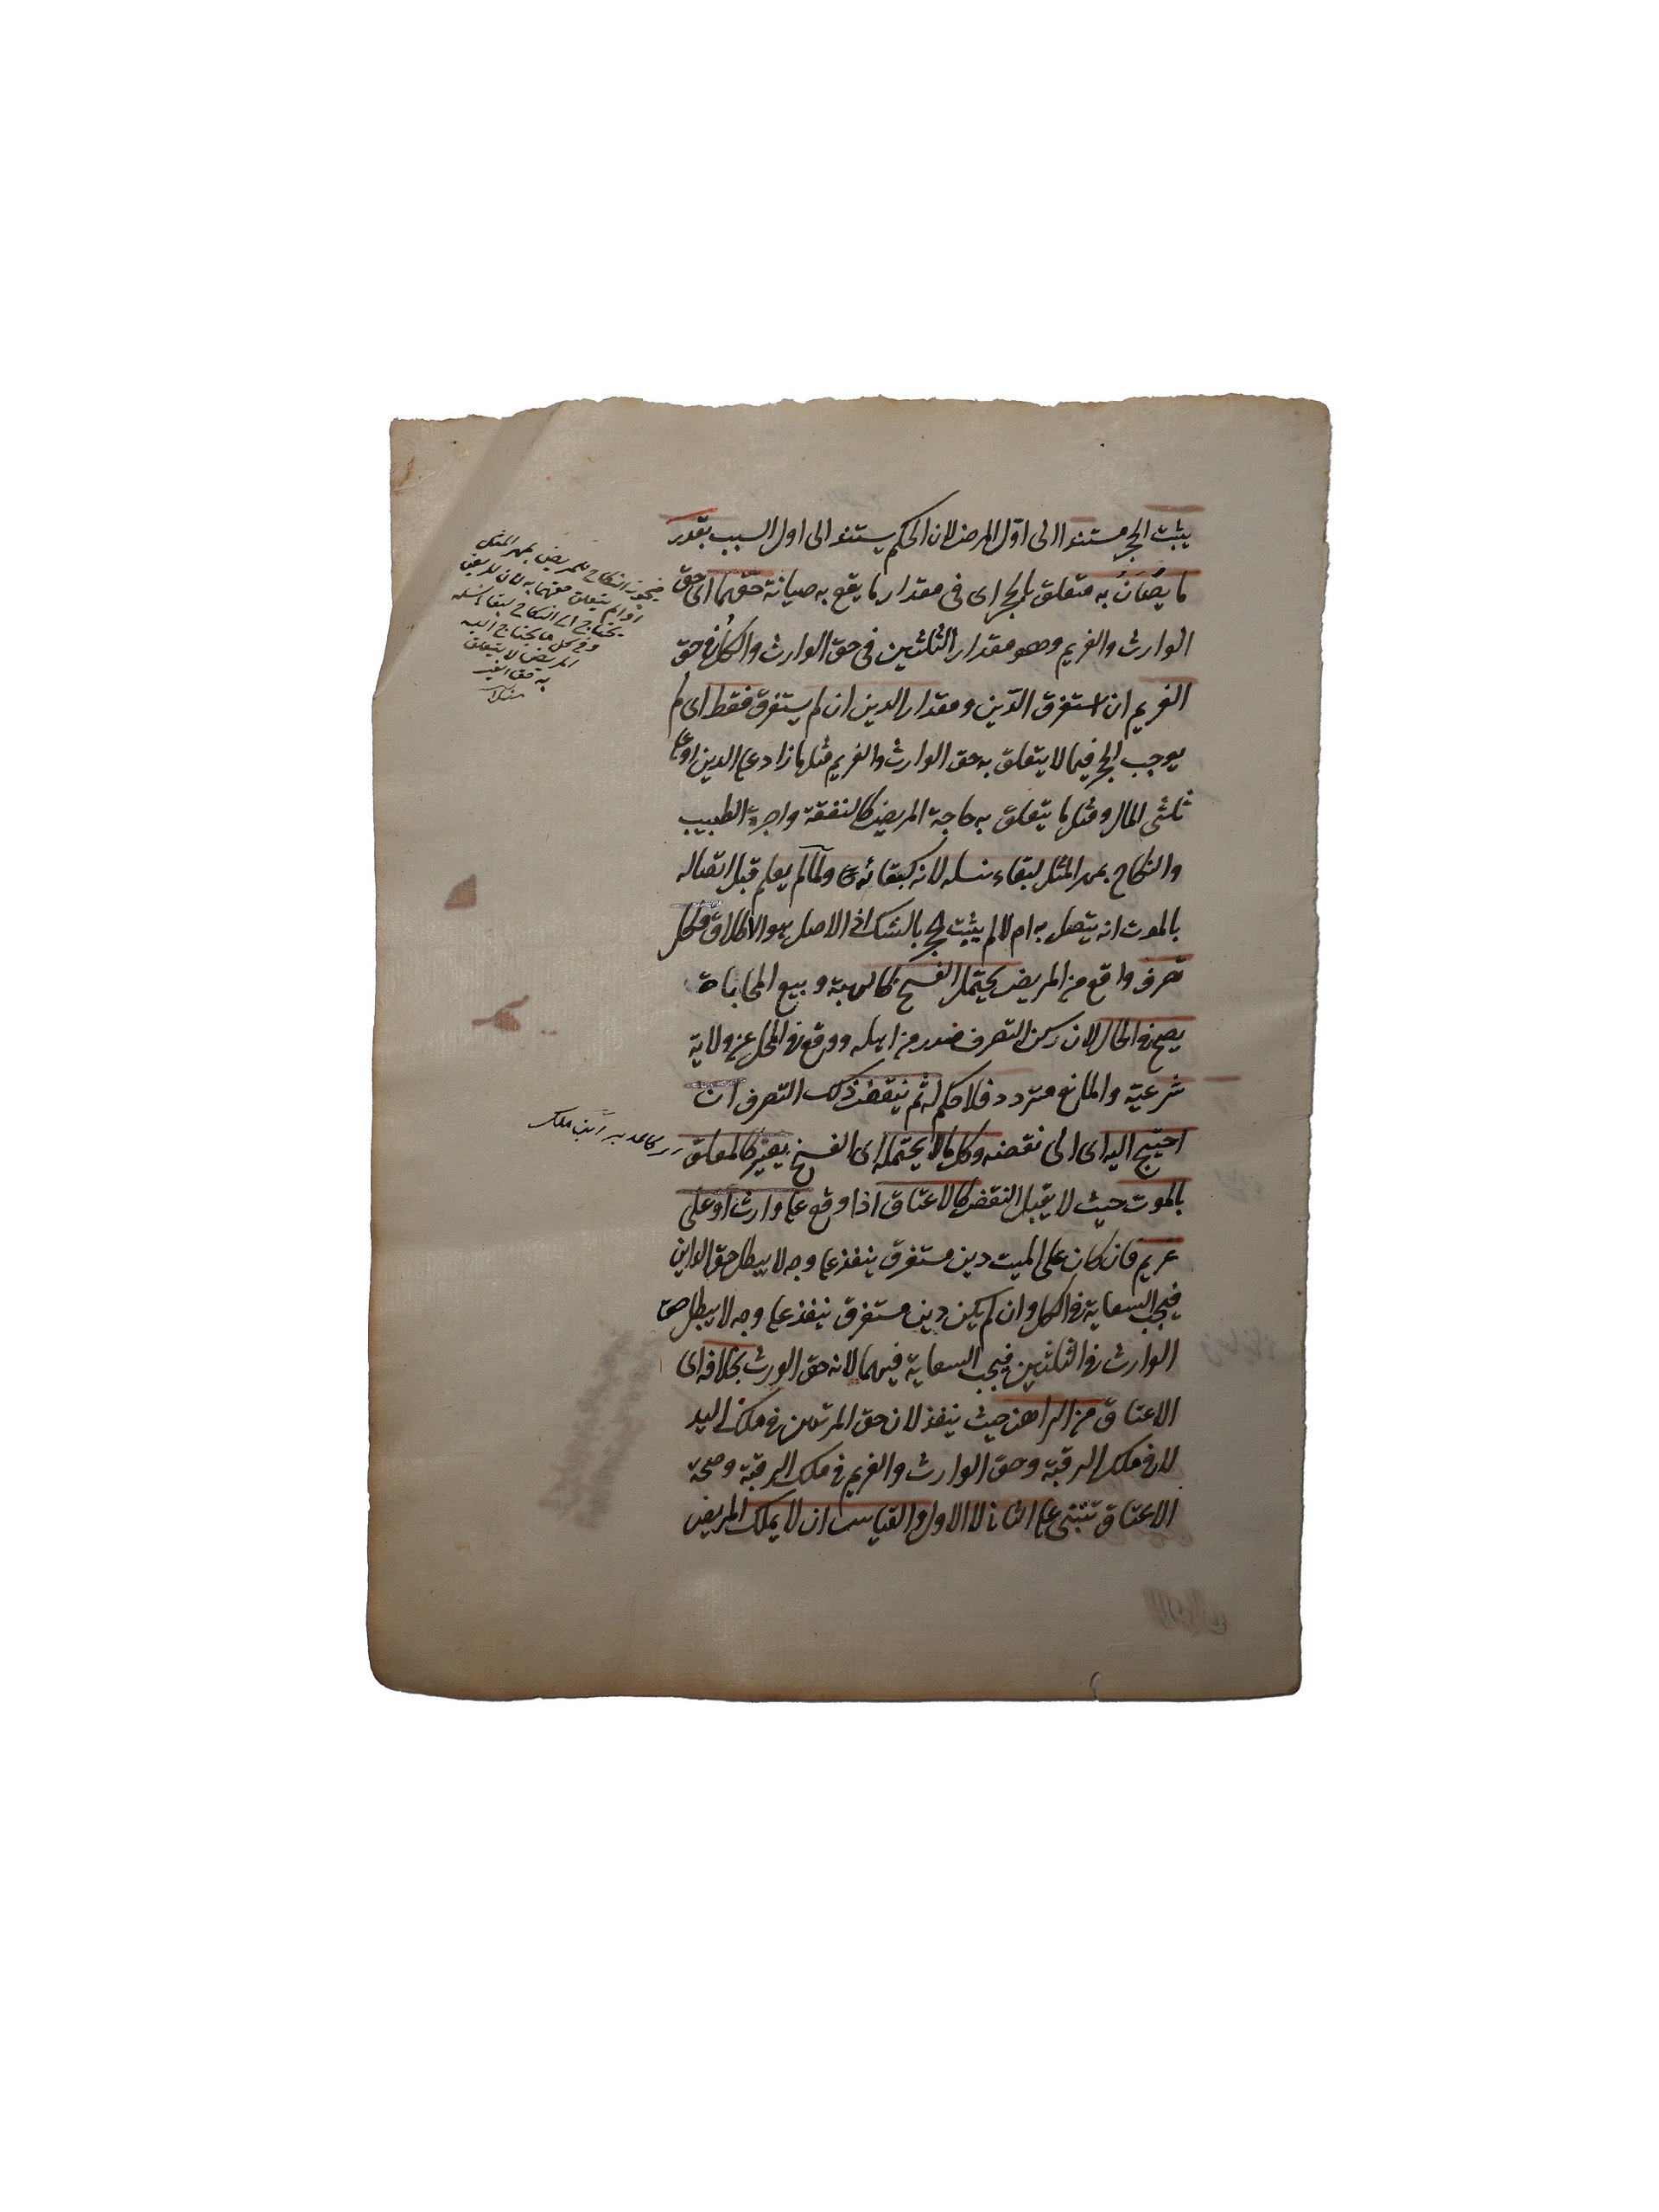 يثبت الحجر مستندا الى اوّل المرض لان الحكم يستند الى اول السبب بقدر
ما يُصَانُ به متعلق بالحجر اى فى مقدار ما يقع به صيانة حقهما اى حق
الوارث والغريم وهو مقدار الثلثين فى حق الوارث والكل فى حق
الغريم ان استغرق الدّين ومقدار الدين ان لم يستغرق فقط اى لم
يوجب الحجر فيما لا يتعلق به حق الوارث والغريم مثل ما زاد على الدين او على
ثلثى المال ومثل ما يتعلق به حاجة المريض كالنفقة واجرة الطبيب
والنكاح بمهر المثل لبقاء نسله لانه كبقائه ولما لم يعلم قبل اتصاله
بالموت انه يتصل به ام لا لم يثبت الحجر بالشك اذ الاصل هو الاطلاق فكل
تصرف واقع من المريض يحتمل الفسخ كالهبة وبيع المحاباة
يصح فى الحال لان ركن التصرف صدر من اهله ووقع فى المحل عن ولاية
شرعية والمانع متردد فلا حكم له ثم ينتقض ذلك التصرف ان
احتيج اليه اى الى نقضه وكل ما لا يحتمله اى الفسخ يصير كالمعلق
بالموت حيث لا يقبل النقض كالاعتاق اذا وقع على وارث او على
غريم فان كان على الميت دين مستغرق ينفذ على وجه لا يبطل حق الداين
فيجب السعاية فى الكل وان لم يكن دين مستغرق ينفذ على وجه لا يبطل حق
الوارث فى الثلثين فيجب السعاية فيهما لانه حق الورث بخلافه اى
الاعتاق من الراهن حيث ينفذ لان حق المرتهن فى ملك اليد
لا فى ملك الرقبة وحق الوارث والغريم فى ملك الرقبة وصحة
الاعتاق تبتنى على الثانى لا الاول والقياس ان لا يملك المريض
فيجوز النكاح للمريض بمهر المثل
اذ لم يتعلق حقهما به لان المريض
يحتاج الى النكاح لبقاء نسله
وفى كل ما يحتاج اليه
المريض لا يتعلق
به حق الغير
ابن ملك